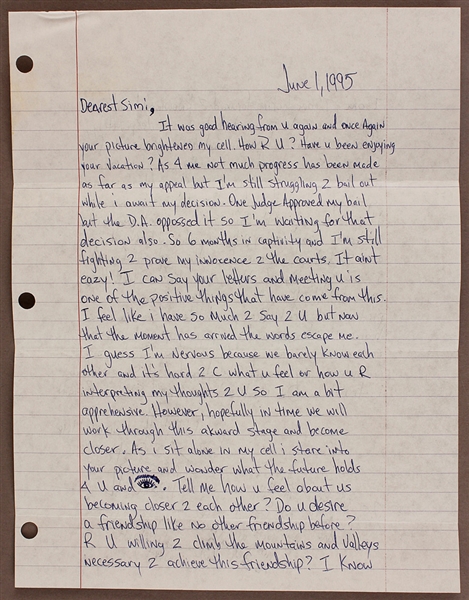 June 1, 1995
Dearest Simi,
It was good hearing from u again and once Again
your picture brightened my cell. How R U? Have u been enjoying
your vacation? As 4 me not much progress has been made
as far as my appeal but I'm still struggling 2 bail out
while i await my decision. One Judge Approved my bail
but the D.A. oppossed it so I'm waiting for that
decision also. So 6 months in captivity and I'm still
fighting 2 prove my innocence 2 the courts. It aint
eazy! I can say your letters and meeting u is
one of the positive things that have come from this.
I feel like i have so Much 2 Say 2 U but now
that the moment has arrived the words escape me.
I guess I'm Nervous because we barely know each
other and it's hard 2 C what u feel or how u R
interpreting my thoughts 2 U so I am a bit
apprehensive. However, hopefully in time we will
work through this akward stage and become
closer. As i sit alone in my cell i stare into
your picture and wonder what the future holds
4 U and 👁. Tell me how u feel about us
becoming closer 2 each other? Do u desire
a friendship like no other friendship before?
R U willing 2 climb the mountains and valleys
necessary 2 achieve this friendship? I Know